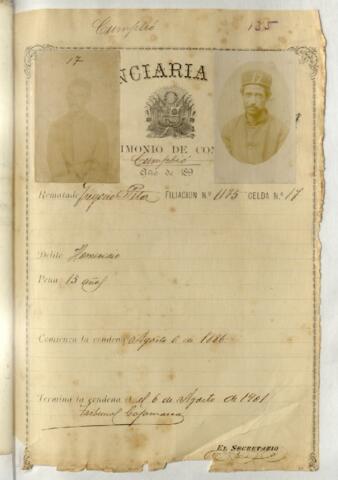 Cumplió 135
17
NCIARIA
17
IMONIO DE CON
Cumplió
Año de 189
Rematado Pita FILIACION N.º 1175 CELDA N.º 17
Delito Homicidio
Pena 15 años
Comienza la condena Agosto 6 de 1886
Termina la condena el 6 de Agosto de 1901
Tribunal Cajamarca
EL SECRETARIO